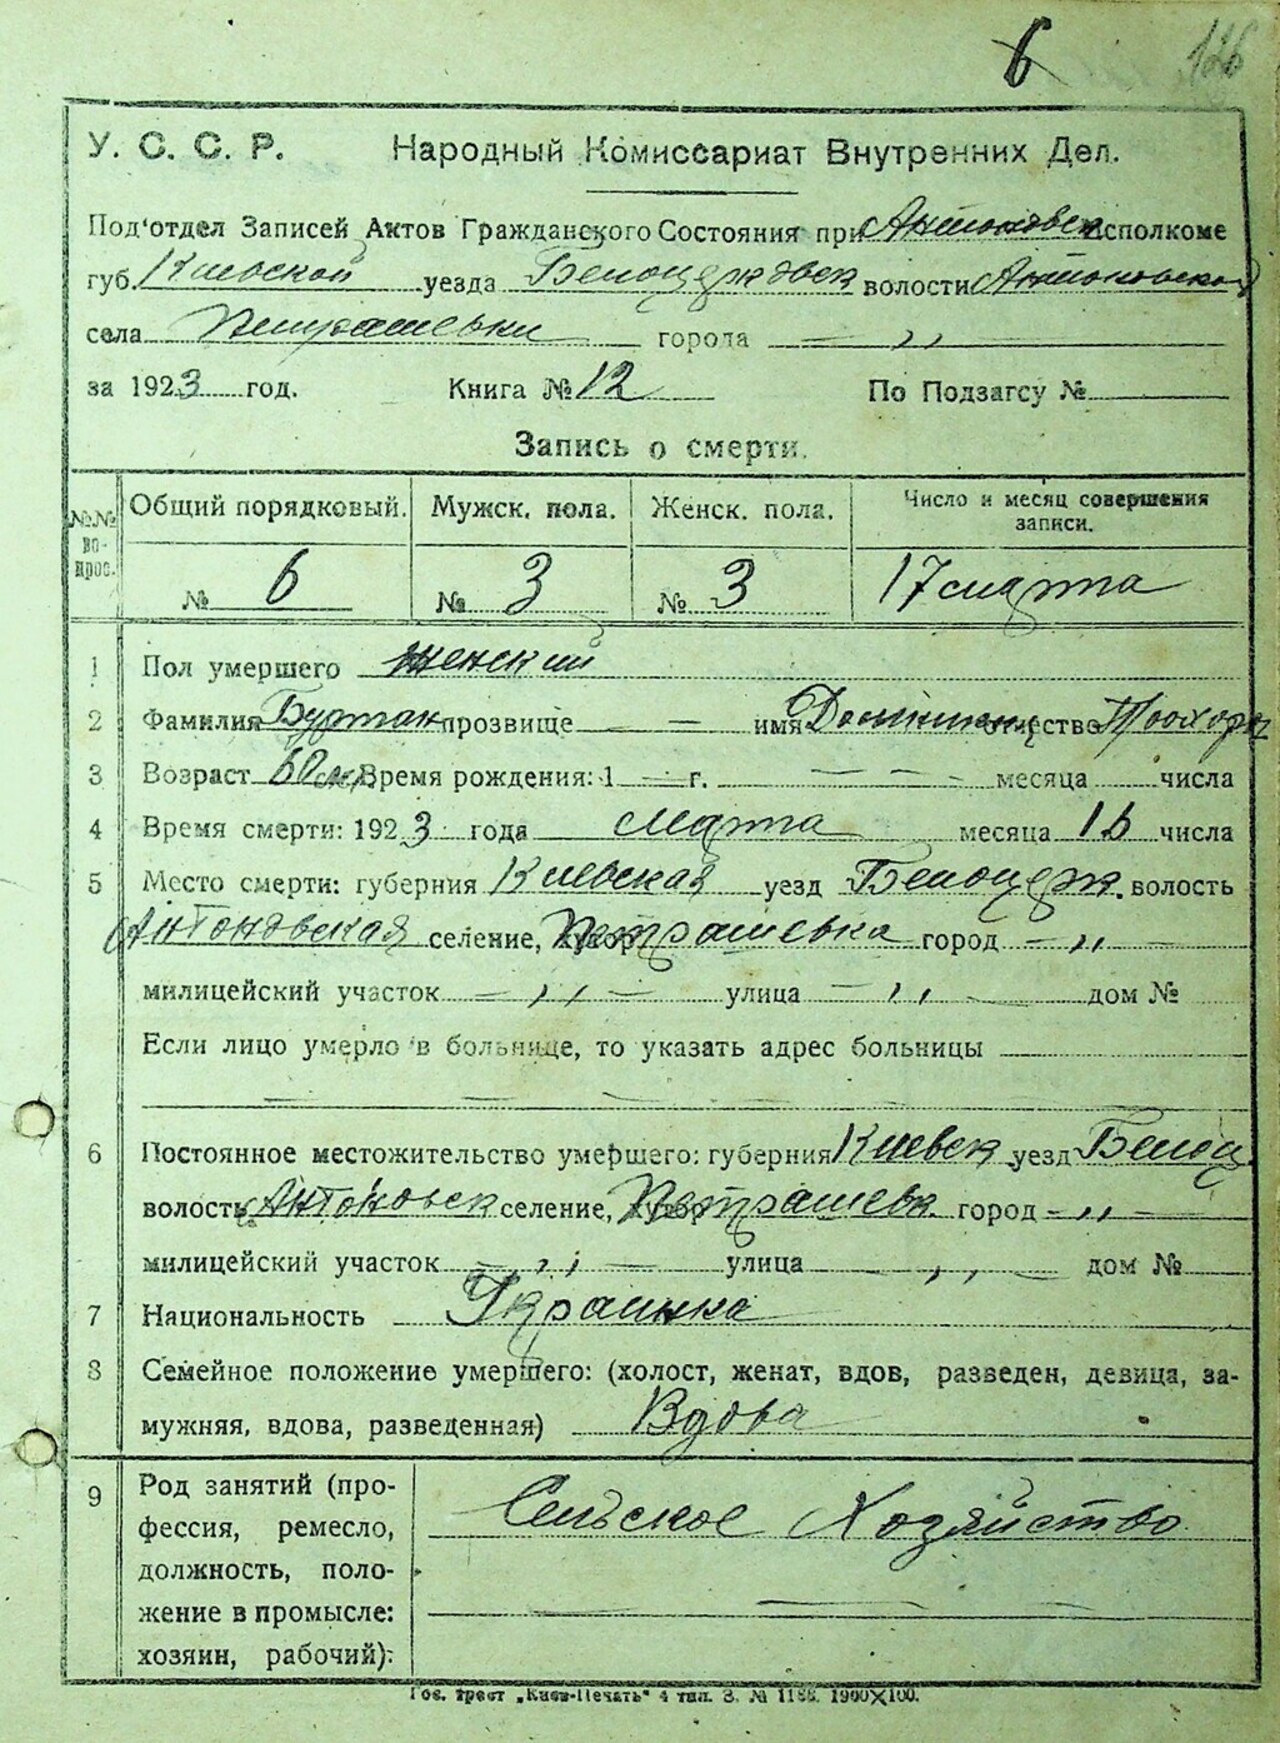 6 126
У. С. С. Р. Народный Комиссариат Внутренних Дел.
Под‘отдел Записей Актов Гражданского Состояния при Антоновск исполкоме
губ. Киевской уезда Белоцерковск волости Антоновской
села Петрашевки города — „ —
за 1923 год. Книга № 12 По Подзагсу №
Запись о смерти.
№№ вопрос. Общий порядковый. Мужск. пола. Женск. пола. Число и месяц совершения записи.
№ 6 № 3 № 3 17 марта
1 Пол умершего Женский
2 Фамилия Буртан прозвище — — имя отчество Прохор
3 Возраст 60 Время рождения: 1 — г. — — — месяца числа
4 Время смерти: 1923 года марта месяца 16 числа
5 Место смерти: губерния Киевская уезд Белоцерк. волость
Антоновская селение, хутор Петрашевка город — „ —
милицейский участок — „ — улица — „ — дом №
Если лицо умерло в больнице, то указать адрес больницы
— — — — —
6 Постоянное местожительство умершего: губерния Киевск уезд Белоц
волость Антоновск селение, хутор Петрашевк. город — „ —
милицейский участок — „ — улица — „ — дом №
7 Национальность Украинка
8 Семейное положение умершего: (холост, женат, вдов, разведен, девица, за-
мужняя, вдова, разведенная) Вдова
9 Род занятий (про-
фессия, ремесло,
должность, поло-
жение в промысле:
хозяин, рабочий):
Сельское Хозяйство
— — —
Гос. трест „Киев-Печать“ 4 тип. З. № 1186. 1900×100.